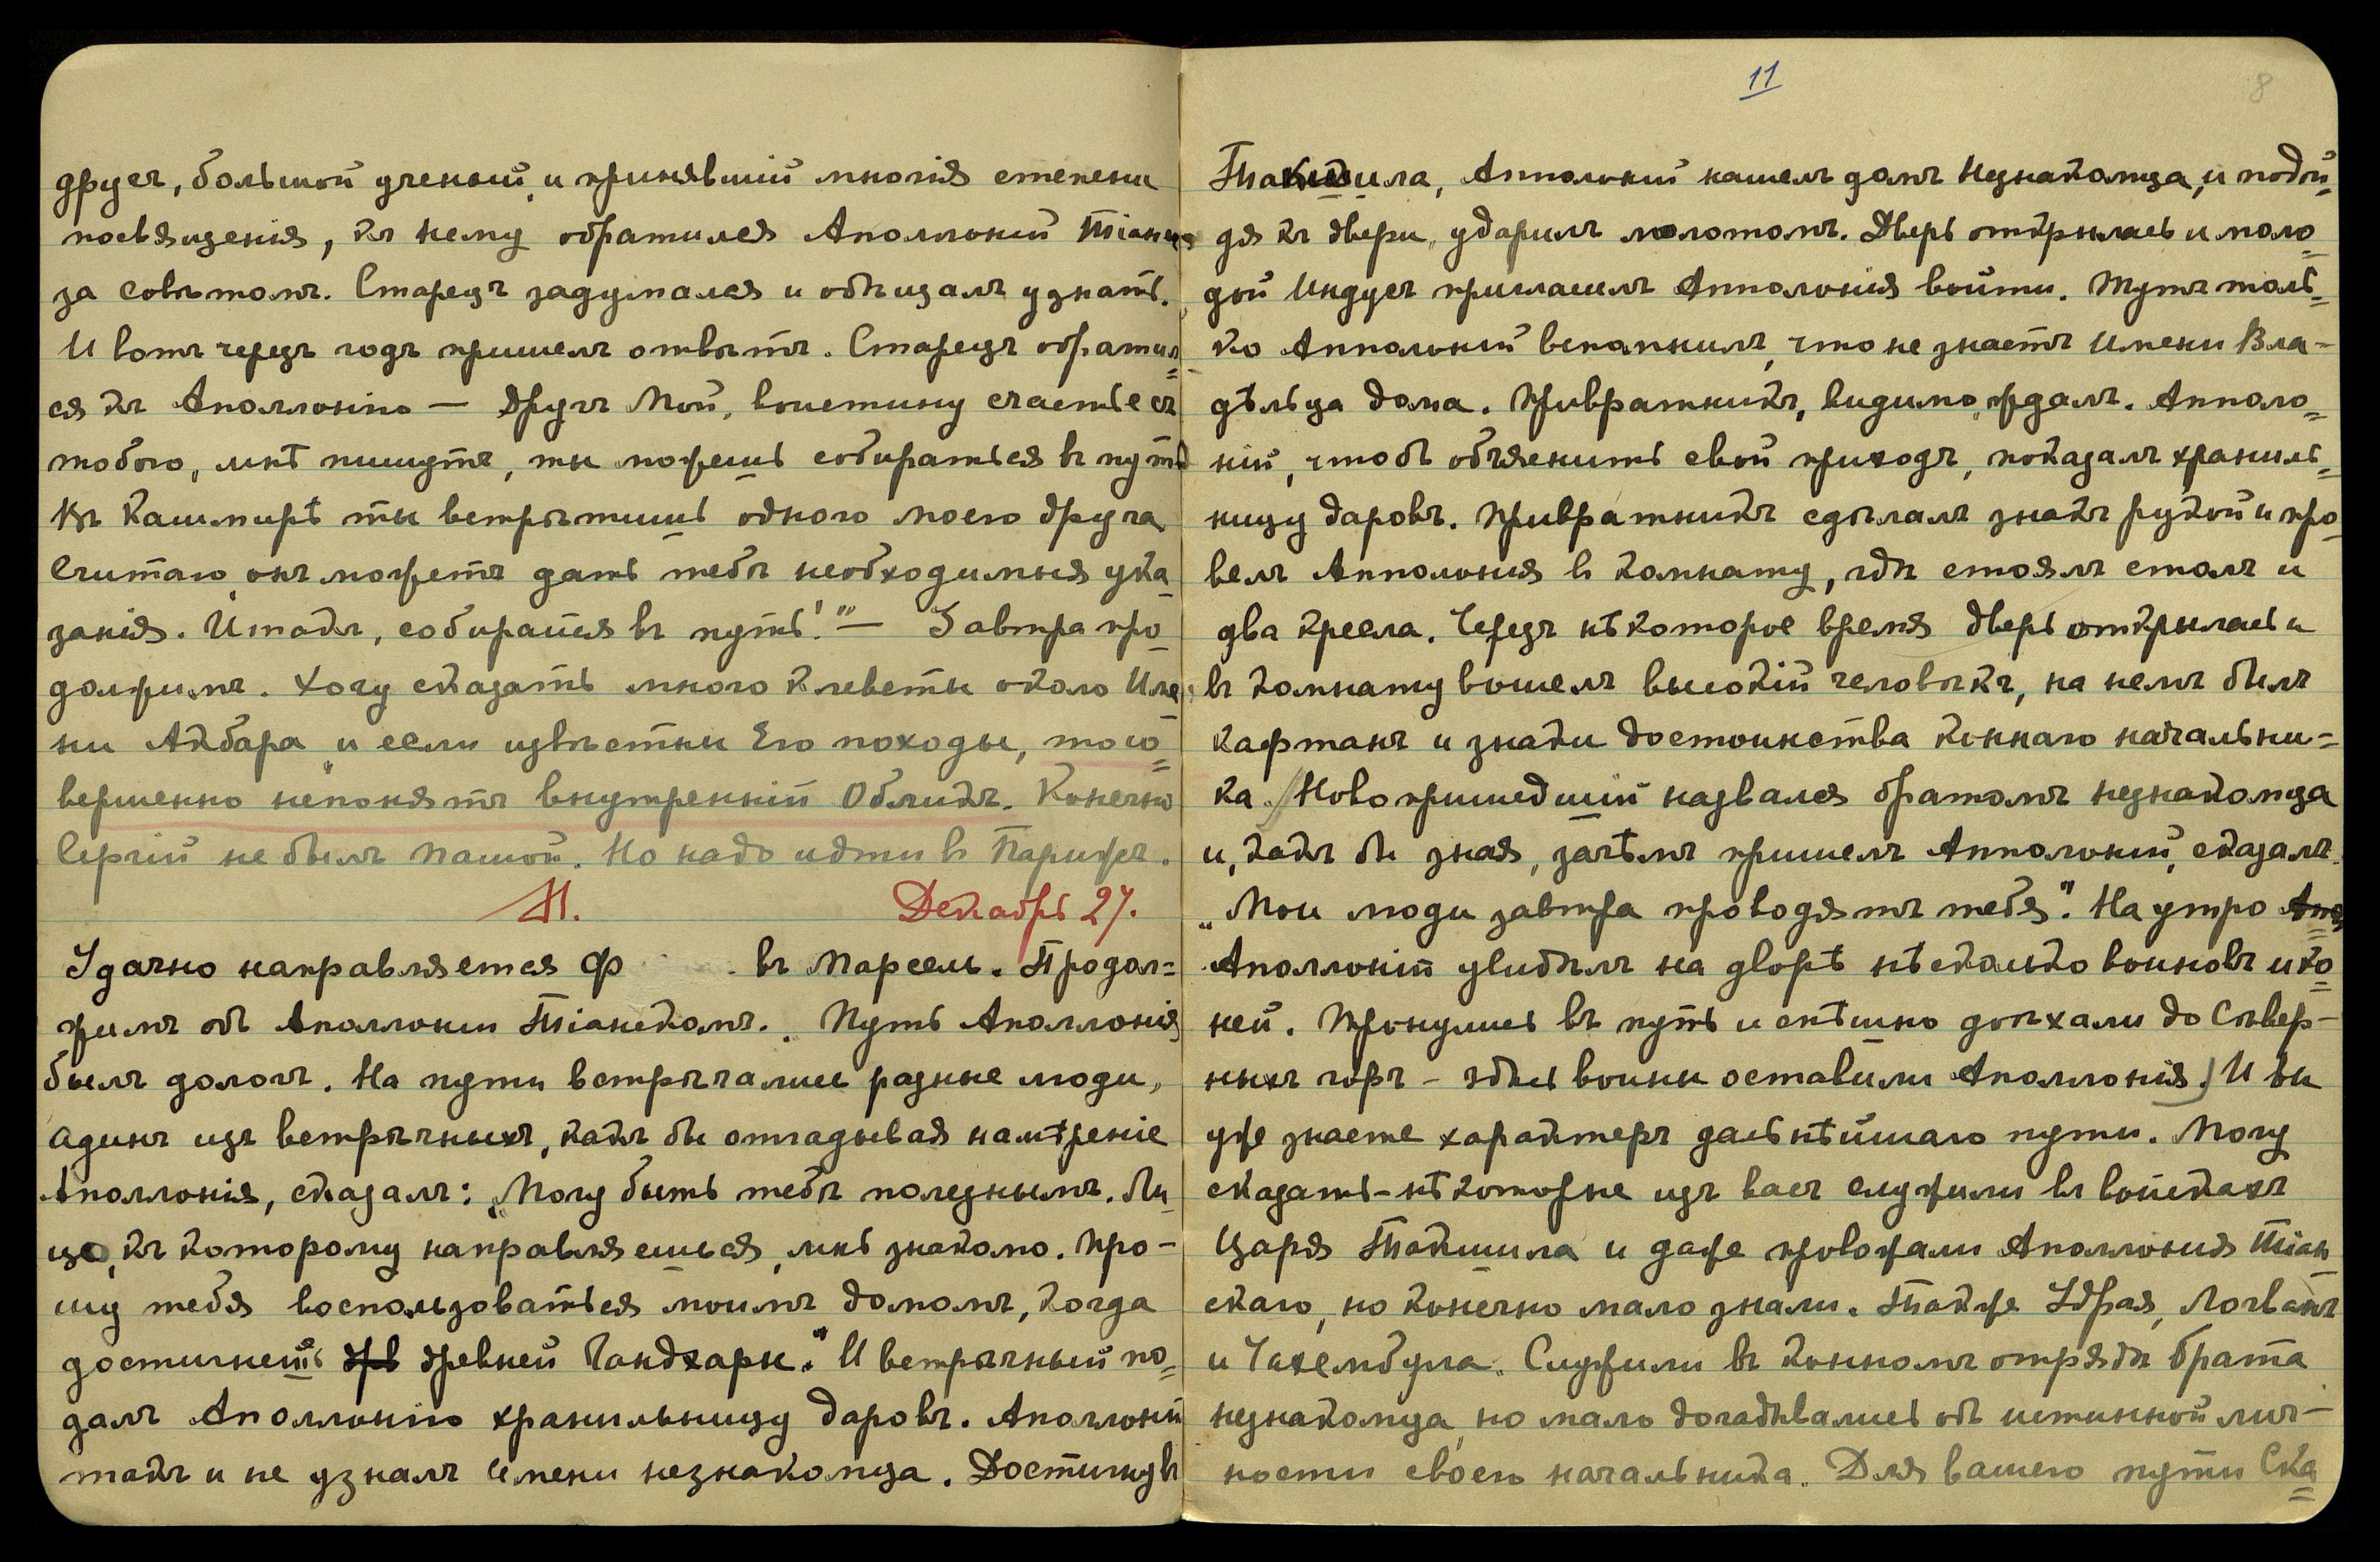 другъ, большой ученый, и принявшій многія степени
посвященія, къ нему обратился Аполлоній Тіанск
за совѣтомъ. Старецъ задумался и обѣщалъ узнать.
И вотъ черезъ годъ пришелъ отвѣтъ. Старецъ обратил=
ся къ Аполлонію — Другъ Мой, воистину счастье съ
тобою, мнѣ пишутъ, ты можешь собираться въ путь
Въ Кашмирѣ ты встрѣтишь одного моего друга
Считаю, онъ можетъ дать тебѣ необходимыя ука-
занія. Итакъ, собирайся въ путь!" — Завтра про-
должимъ. Хочу сказать много клеветы около Име-
ни Акбара, и если извѣстны Его походы, то со=
вершенно непонятъ внутренній Обликъ. Конечно
Сергій не былъ Пашой. Но надо идти въ Парижъ.
М. Декабрь 27.
Удачно направляется Ф въ Марсель. Продол=
жимъ объ Аполлоніи Тіанскомъ. Путь Аполлонія
былъ дологъ. На пути встрѣчались разные люди,
Одинъ изъ встрѣчныхъ, какъ бы отгадывая намѣреніе
Аполлонія, сказалъ: „Могу быть тебѣ полезнымъ. Ли-
цо, къ которому направляешься, мнѣ знакомо. Про-
шу тебя воспользоваться моимъ домомъ, когда
достигнешь др древней Гандхары." И встрѣчный по=
далъ Аполлонію хранильницу даровъ. Аполлоній
такъ и не узналъ Имени незнакомца. Достигнувъ
11
8
Такшила, Апполоній нашелъ домъ Незнакомца, и подой=
дя къ двери, ударилъ молотомъ. Дверь открылась и моло=
дой Индусъ пригласилъ Апполонія войти. Тутъ толь=
ко Апполоній вспомнилъ, что не знаетъ Имени Вла-
дѣльца дома. Привратникъ, видимо, ждалъ. Апполо=
ній, чтобъ объяснить свой приходъ, показалъ храниль=
ницу даровъ. Привратникъ сдѣлалъ знакъ рукой и про-
велъ Апполонія въ комнату, гдѣ стоялъ столъ и
два кресла. Черезъ нѣкоторое время дверь открылась и
въ комнату вошелъ высокій человѣкъ, на немъ былъ
кафтанъ и знаки достоинства коннаго начальни=
ка. Новопришедшій назвался братомъ незнакомца
и, какъ бы зная, зачѣмъ пришелъ Апполоній, сказалъ.
„Мои люди завтра проводятъ тебя". На утро Апо
Аполлоній увидѣлъ на дворѣ нѣсколько воиновъ и ко=
ней. Тронулись въ путь и спѣшно доѣхали до Сѣвер-
ныхъ горъ – здѣсь воины оставили Аполлонія. И вы
уже знаете характеръ дальнѣйшаго пути. Могу
сказать – нѣкоторые изъ васъ служили въ войскахъ
Царя Такшила и даже провожали Аполлонія Тіан-
скаго, но конечно мало знали. Также Удрая, Логванъ
и Чахембула. Служили въ конномъ отрядѣ брата
незнакомца, но мало догадывались объ истинной лич-
ности своего начальника. Для вашего пути Ска=